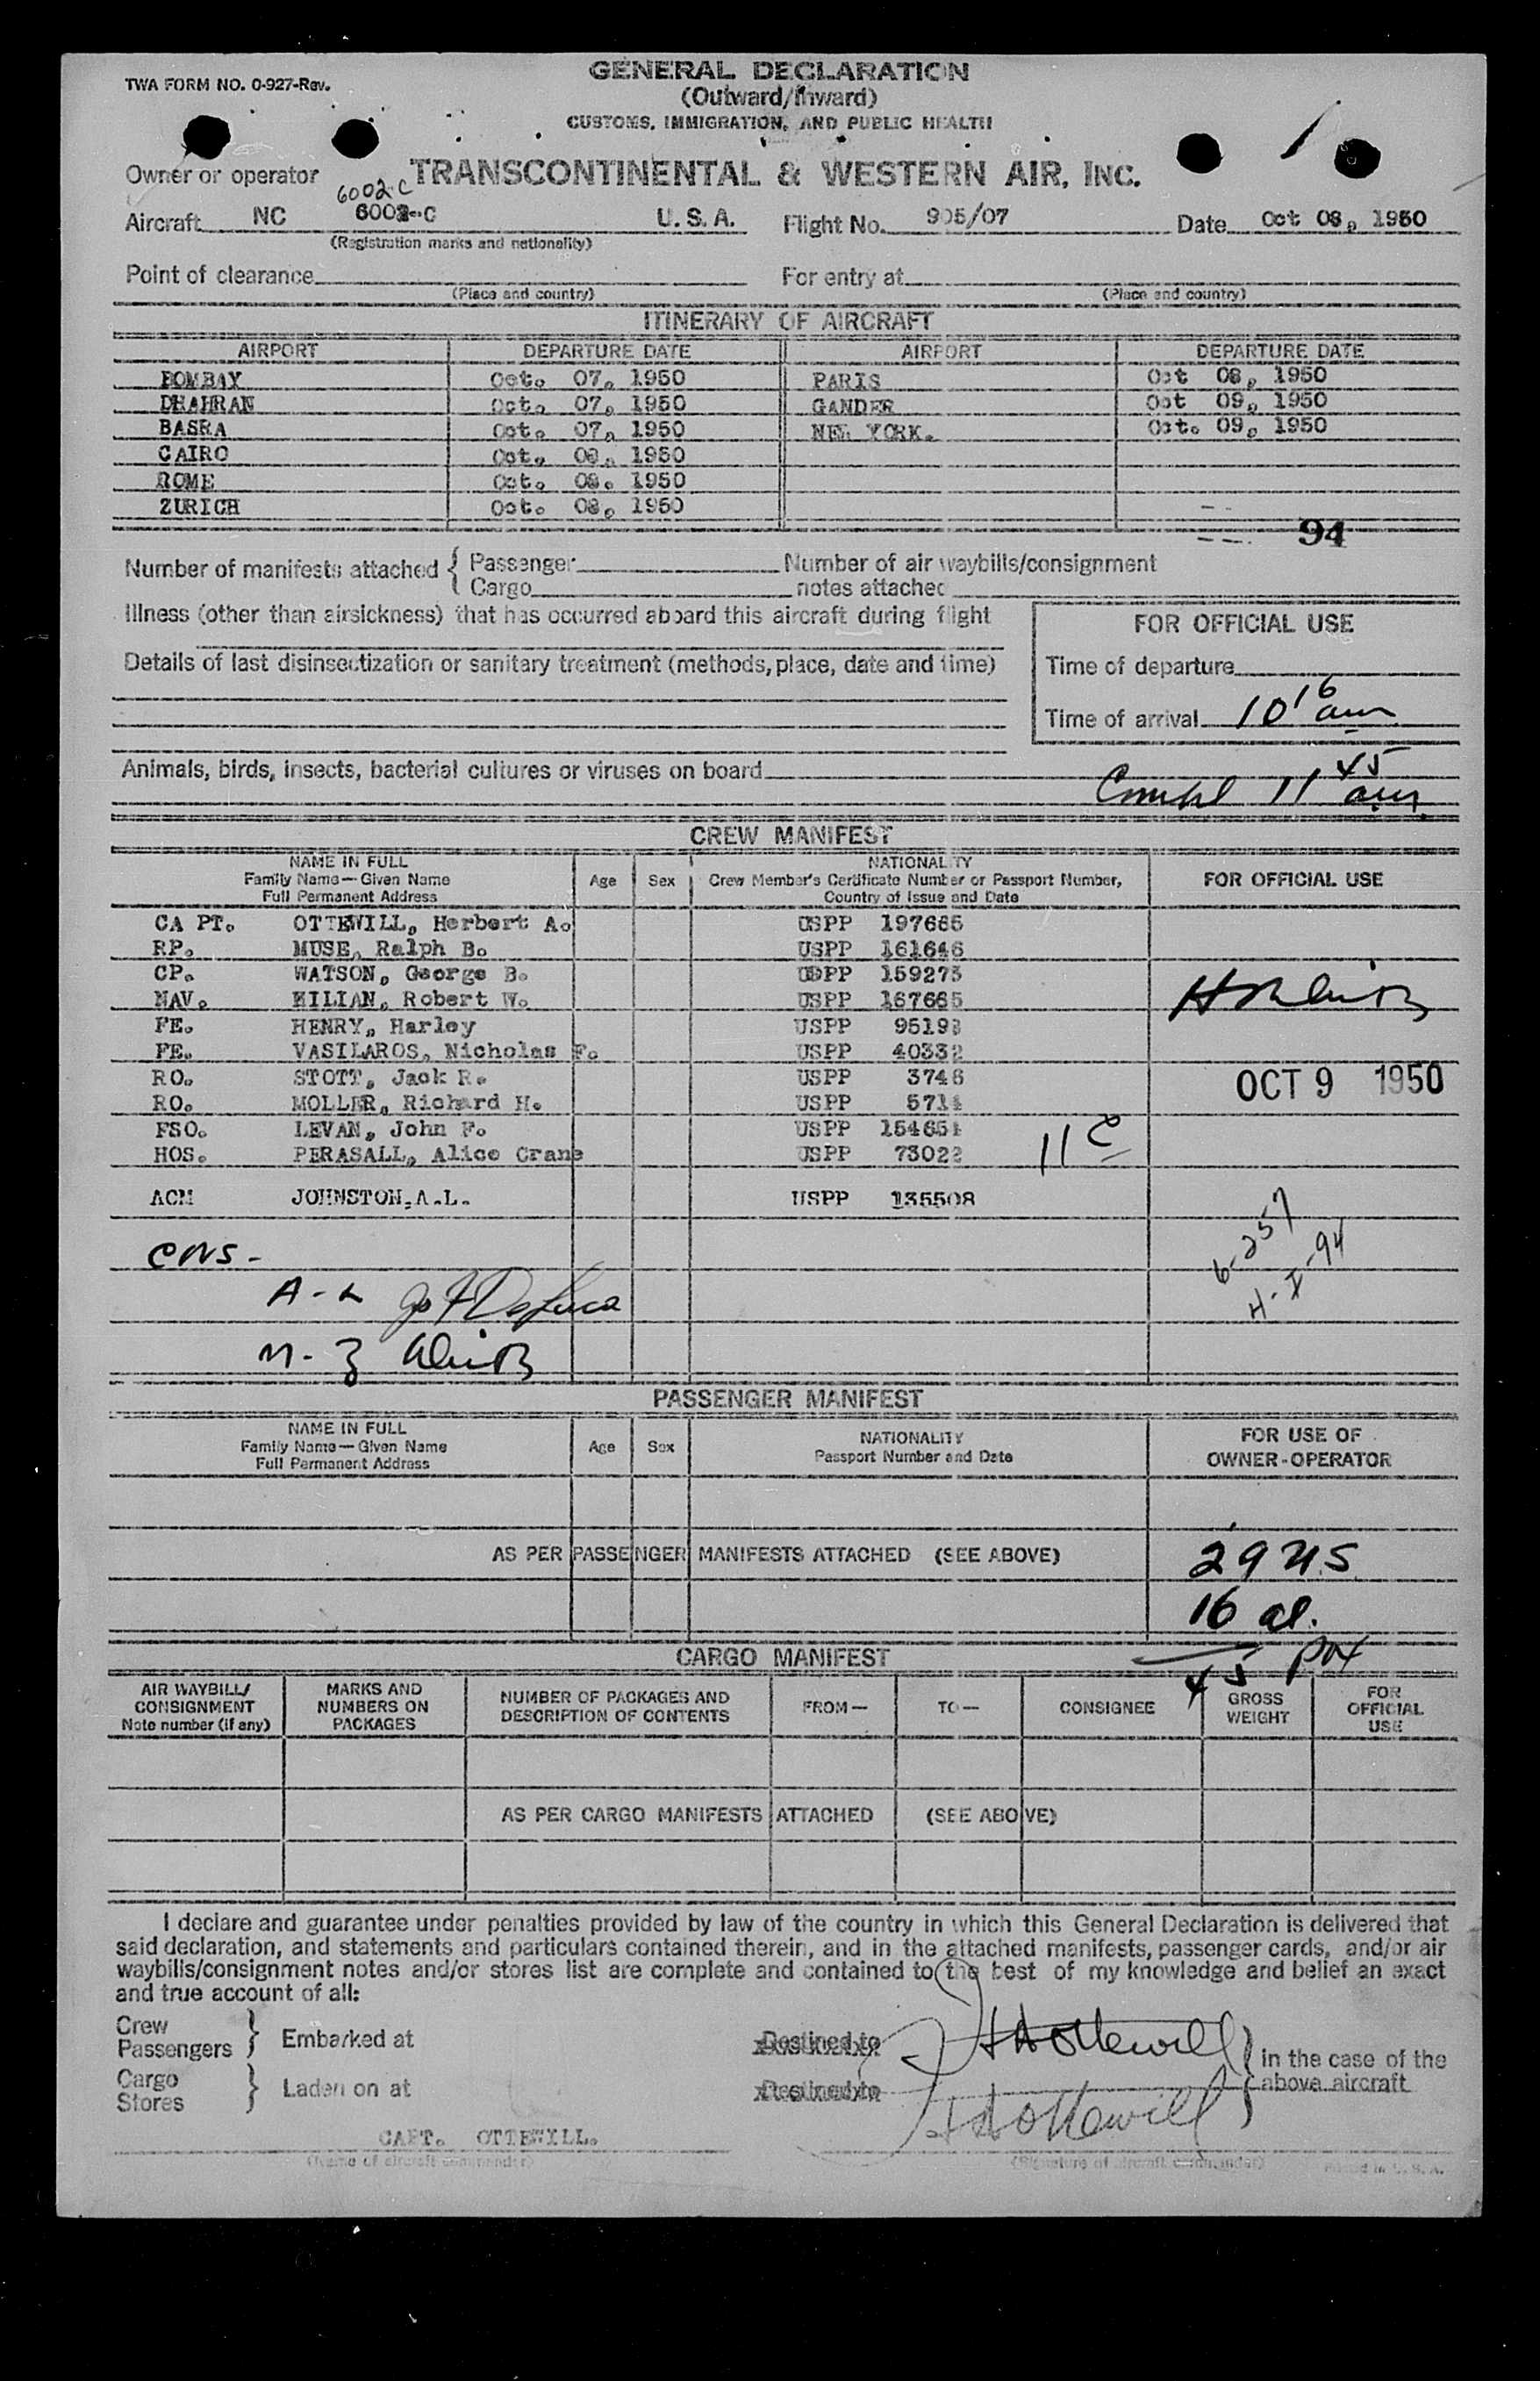 TWA FORM NO. 0-927-Rev.
GENERAL DECLARATION
(Outward/Inward)
CUSTOMS, IMMIGRATION, AND PUBLIC HEALTH
Owner or operator TRANSCONTINENTAL & WESTERN AIR, INC.
6002-C
Aircraft NC 6002-C U.S.A. Flight No. 905/07 Date Oct 08, 1950
(Registration marks and nationality)
Point of clearance For entry at
(Place and country) (Place and country)
ITINERARY OF AIRCRAFT
AIRPORT DEPARTURE DATE AIRPORT DEPARTURE DATE
BOMBAY Oct. 07, 1950 PARIS Oct 08, 1950
DHAHRAN Oct. 07, 1950 GANDER Oct 09, 1950
BASRA Oct. 07, 1950 NEW YORK. Oct. 09, 1950
CAIRO Oct. 08, 1950
ROME Oct. 08. 1950
ZURICH Oct. 08, 1950
94
Number of manifests attached { Passenger Number of air waybills/consignment
Cargo notes attached
Illness (other than airsickness) that has occurred aboard this aircraft during flight
FOR OFFICIAL USE
Details of last disinsectization or sanitary treatment (methods, place, date and time)
Time of departure
Time of arrival 10 16 am
Animals, birds, insects, bacterial cultures or viruses on board
11 45 am
CREW MANIFEST
NAME IN FULL
Family Name—Given Name
Full Permanent Address
Age Sex
NATIONALITY
Crew Member's Certificate Number or Passport Number,
Country of Issue and Date
FOR OFFICIAL USE
CA PT. OTTEWILL, Herbert A. USPP 197665
RP. MUSE, Ralph B. USPP 161646
CP. WATSON, George B. USPP 159275
NAV. KILIAN, Robert W. USPP 167665
FE. HENRY, Harley USPP 95193
FE. VASILAROS, Nicholas F. USPP 40332
RO. STOTT, Jack R. USPP 3746
OCT 9 1950
RO. MOLLER, Richard H. USPP 5714
FSO. LEVAN, John F. USPP 154651
HOS. PERASALL, Alice Crane USPP 73022
11 C
ACM JOHNSTON.A.L. USPP 135508
6-257
H-I-94
CNS-
A-L
M-3
PASSENGER MANIFEST
NAME IN FULL
Family Name—Given Name
Full Permanent Address
Age Sex
NATIONALITY
Passport Number and Date
FOR USE OF
OWNER-OPERATOR
AS PER PASSENGER MANIFESTS ATTACHED (SEE ABOVE)
29 U.S.
16 al.
45 pax
CARGO MANIFEST
AIR WAYBILL/
CONSIGNMENT
Note number (if any)
MARKS AND
NUMBERS ON
PACKAGES
NUMBER OF PACKAGES AND
DESCRIPTION OF CONTENTS
FROM—
TO—
CONSIGNEE
GROSS
WEIGHT
FOR
OFFICIAL
USE
AS PER CARGO MANIFESTS ATTACHED (SEE ABOVE)
I declare and guarantee under penalties provided by law of the country in which this General Declaration is delivered that
said declaration, and statements and particulars contained therein, and in the attached manifests, passenger cards, and/or air
waybills/consignment notes and/or stores list are complete and contained to the best of my knowledge and belief an exact
and true account of all:
Crew
Passengers } Embarked at Destined to
H A Ottewill
in the case of the
above aircraft
Cargo
Stores } Laden on at Destined to
H A Ottewill
CAPT. OTTEWILL.
(Name of aircraft commander) (Signature of aircraft commander) Printed in U. S. A.